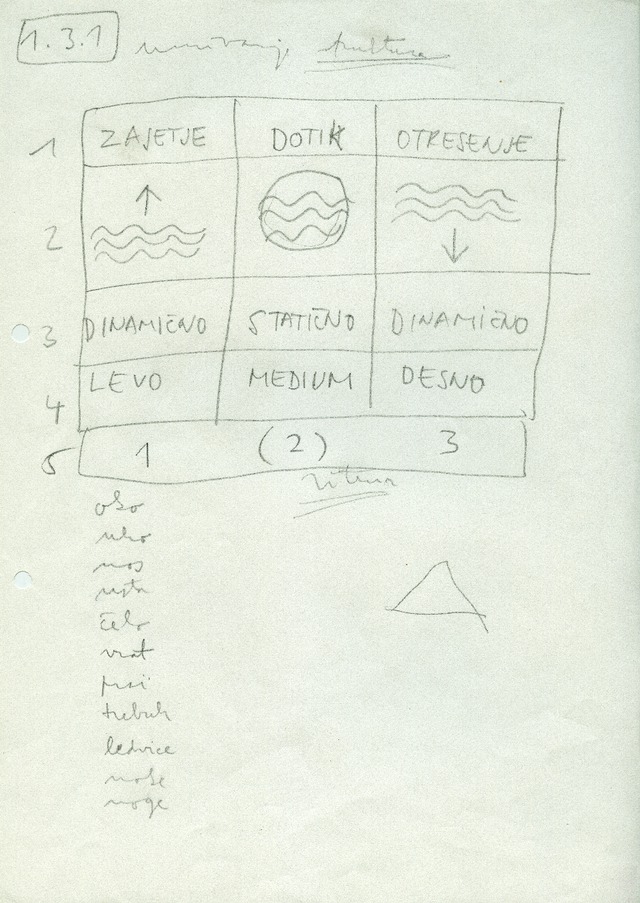 1.3.1 umivanje kultura
1 ZAJETJE DOTIK OTRESENJE
2
3 DINAMIČNO STATIČNO DINAMIČNO
4 LEVO MEDIUM DESNO
5 1 (2) 3
oko
uho
nos
usta
čelo
vrat
prsi
trebuh
ledvice
roke
noge